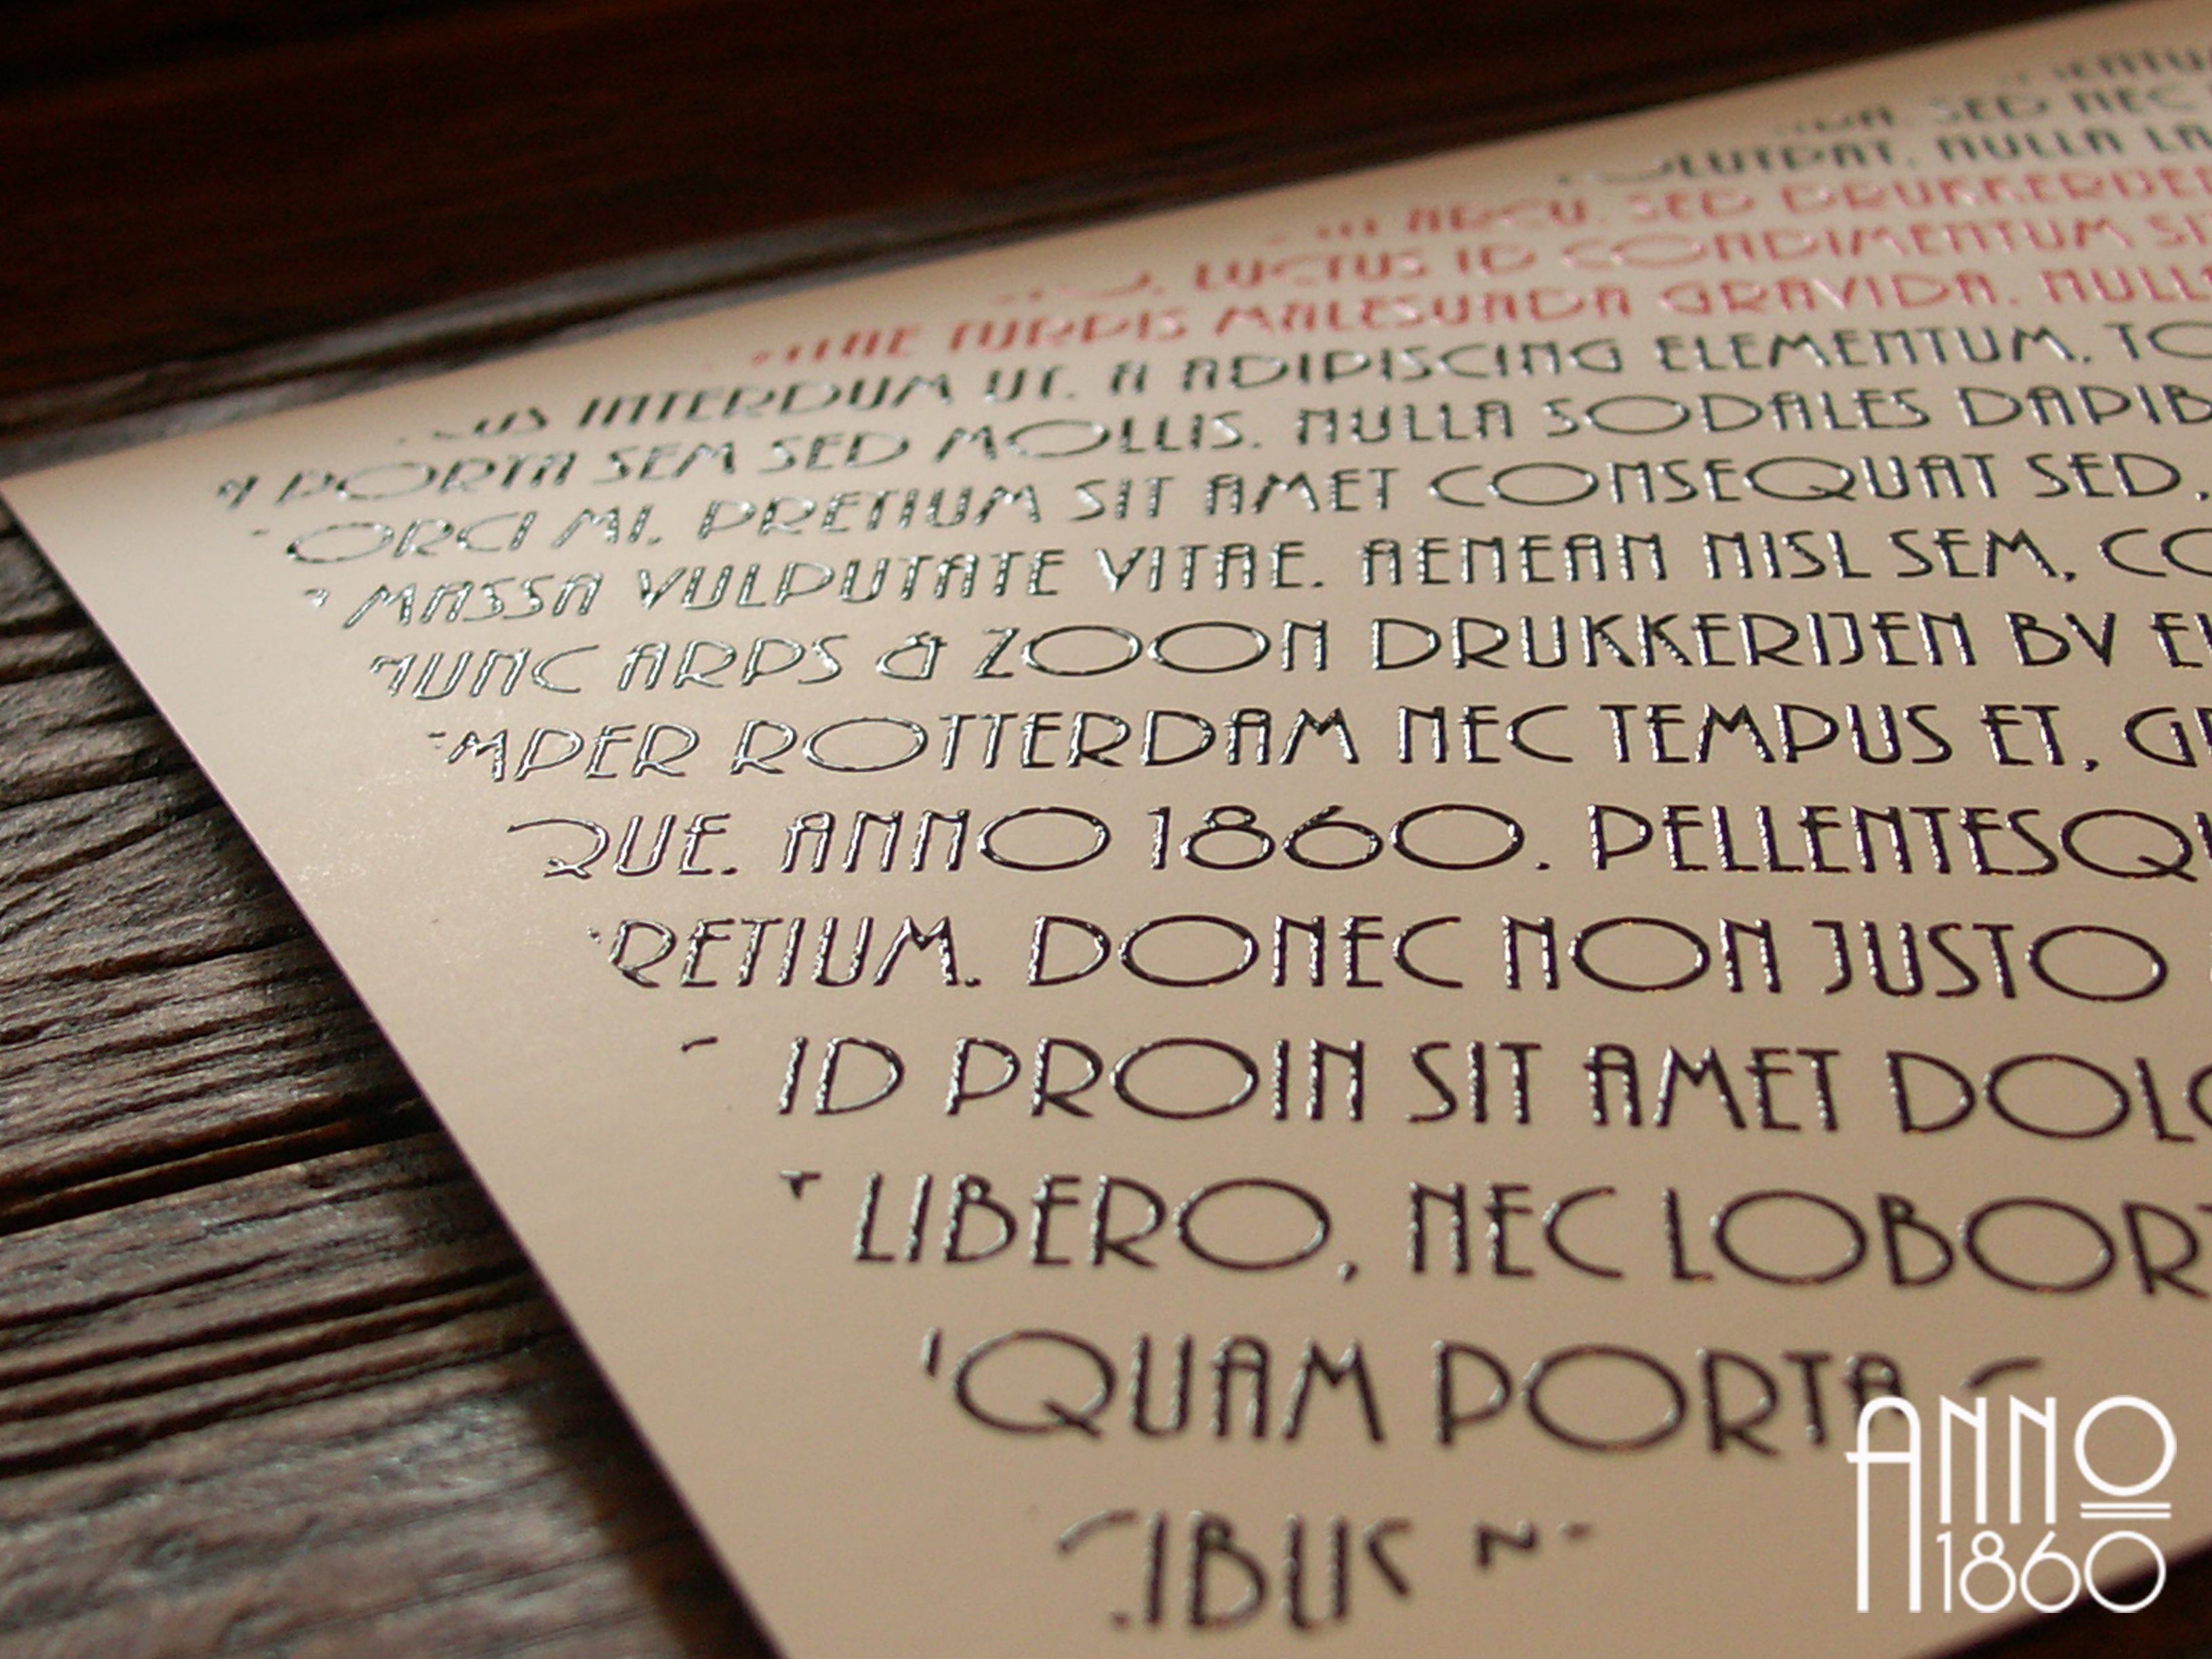 SED NEC
NULLA
ARCU. SED
LUCTUS ID CONDIMENTUM
TURPIS MALESUADA GRAVIDA.
INTERDUM UT. A ADIPISCING ELEMENTUM.
PORTA SEM SED MOLLIS. NULLA SODALES DAPIB
ORCI MI, PRETIUM SIT AMET CONSEQUAT SED,
MASSA VULPUTATE VITAE. AENEAN NISL SEM, CO
NUNC ARPS & ZOON DRUKKERIJEN BV
MPER ROTTERDAM NEC TEMPUS ET, GR
QUE. ANNO 1860. PELLENTESQU
RETIUM. DONEC NON JUSTO
ID PROIN SIT AMET DOLO
LIBERO, NEC LOBORT
QUAM PORTA
IBUS
ANNO
1860